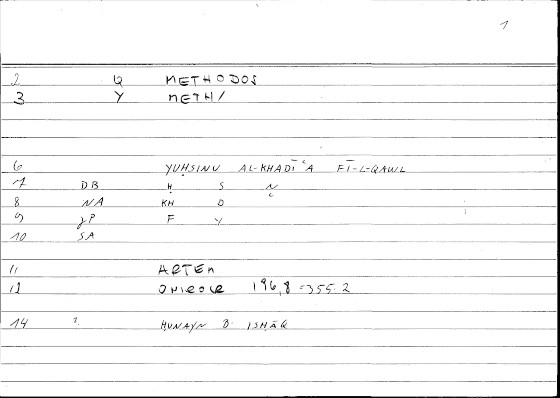 1
2 Q METHODOS
3 Y METH/
6 YUḤSINU AL-KHADĪ‘A FĪ-L-QAWL
7 DB Ḥ S N
8 NA KH D
9 JP F Y
10 SA
11 ARTEM
12 ONIROCR 196,8 = 355.2
14 1. ḤUNAYN B. ISḤĀQ